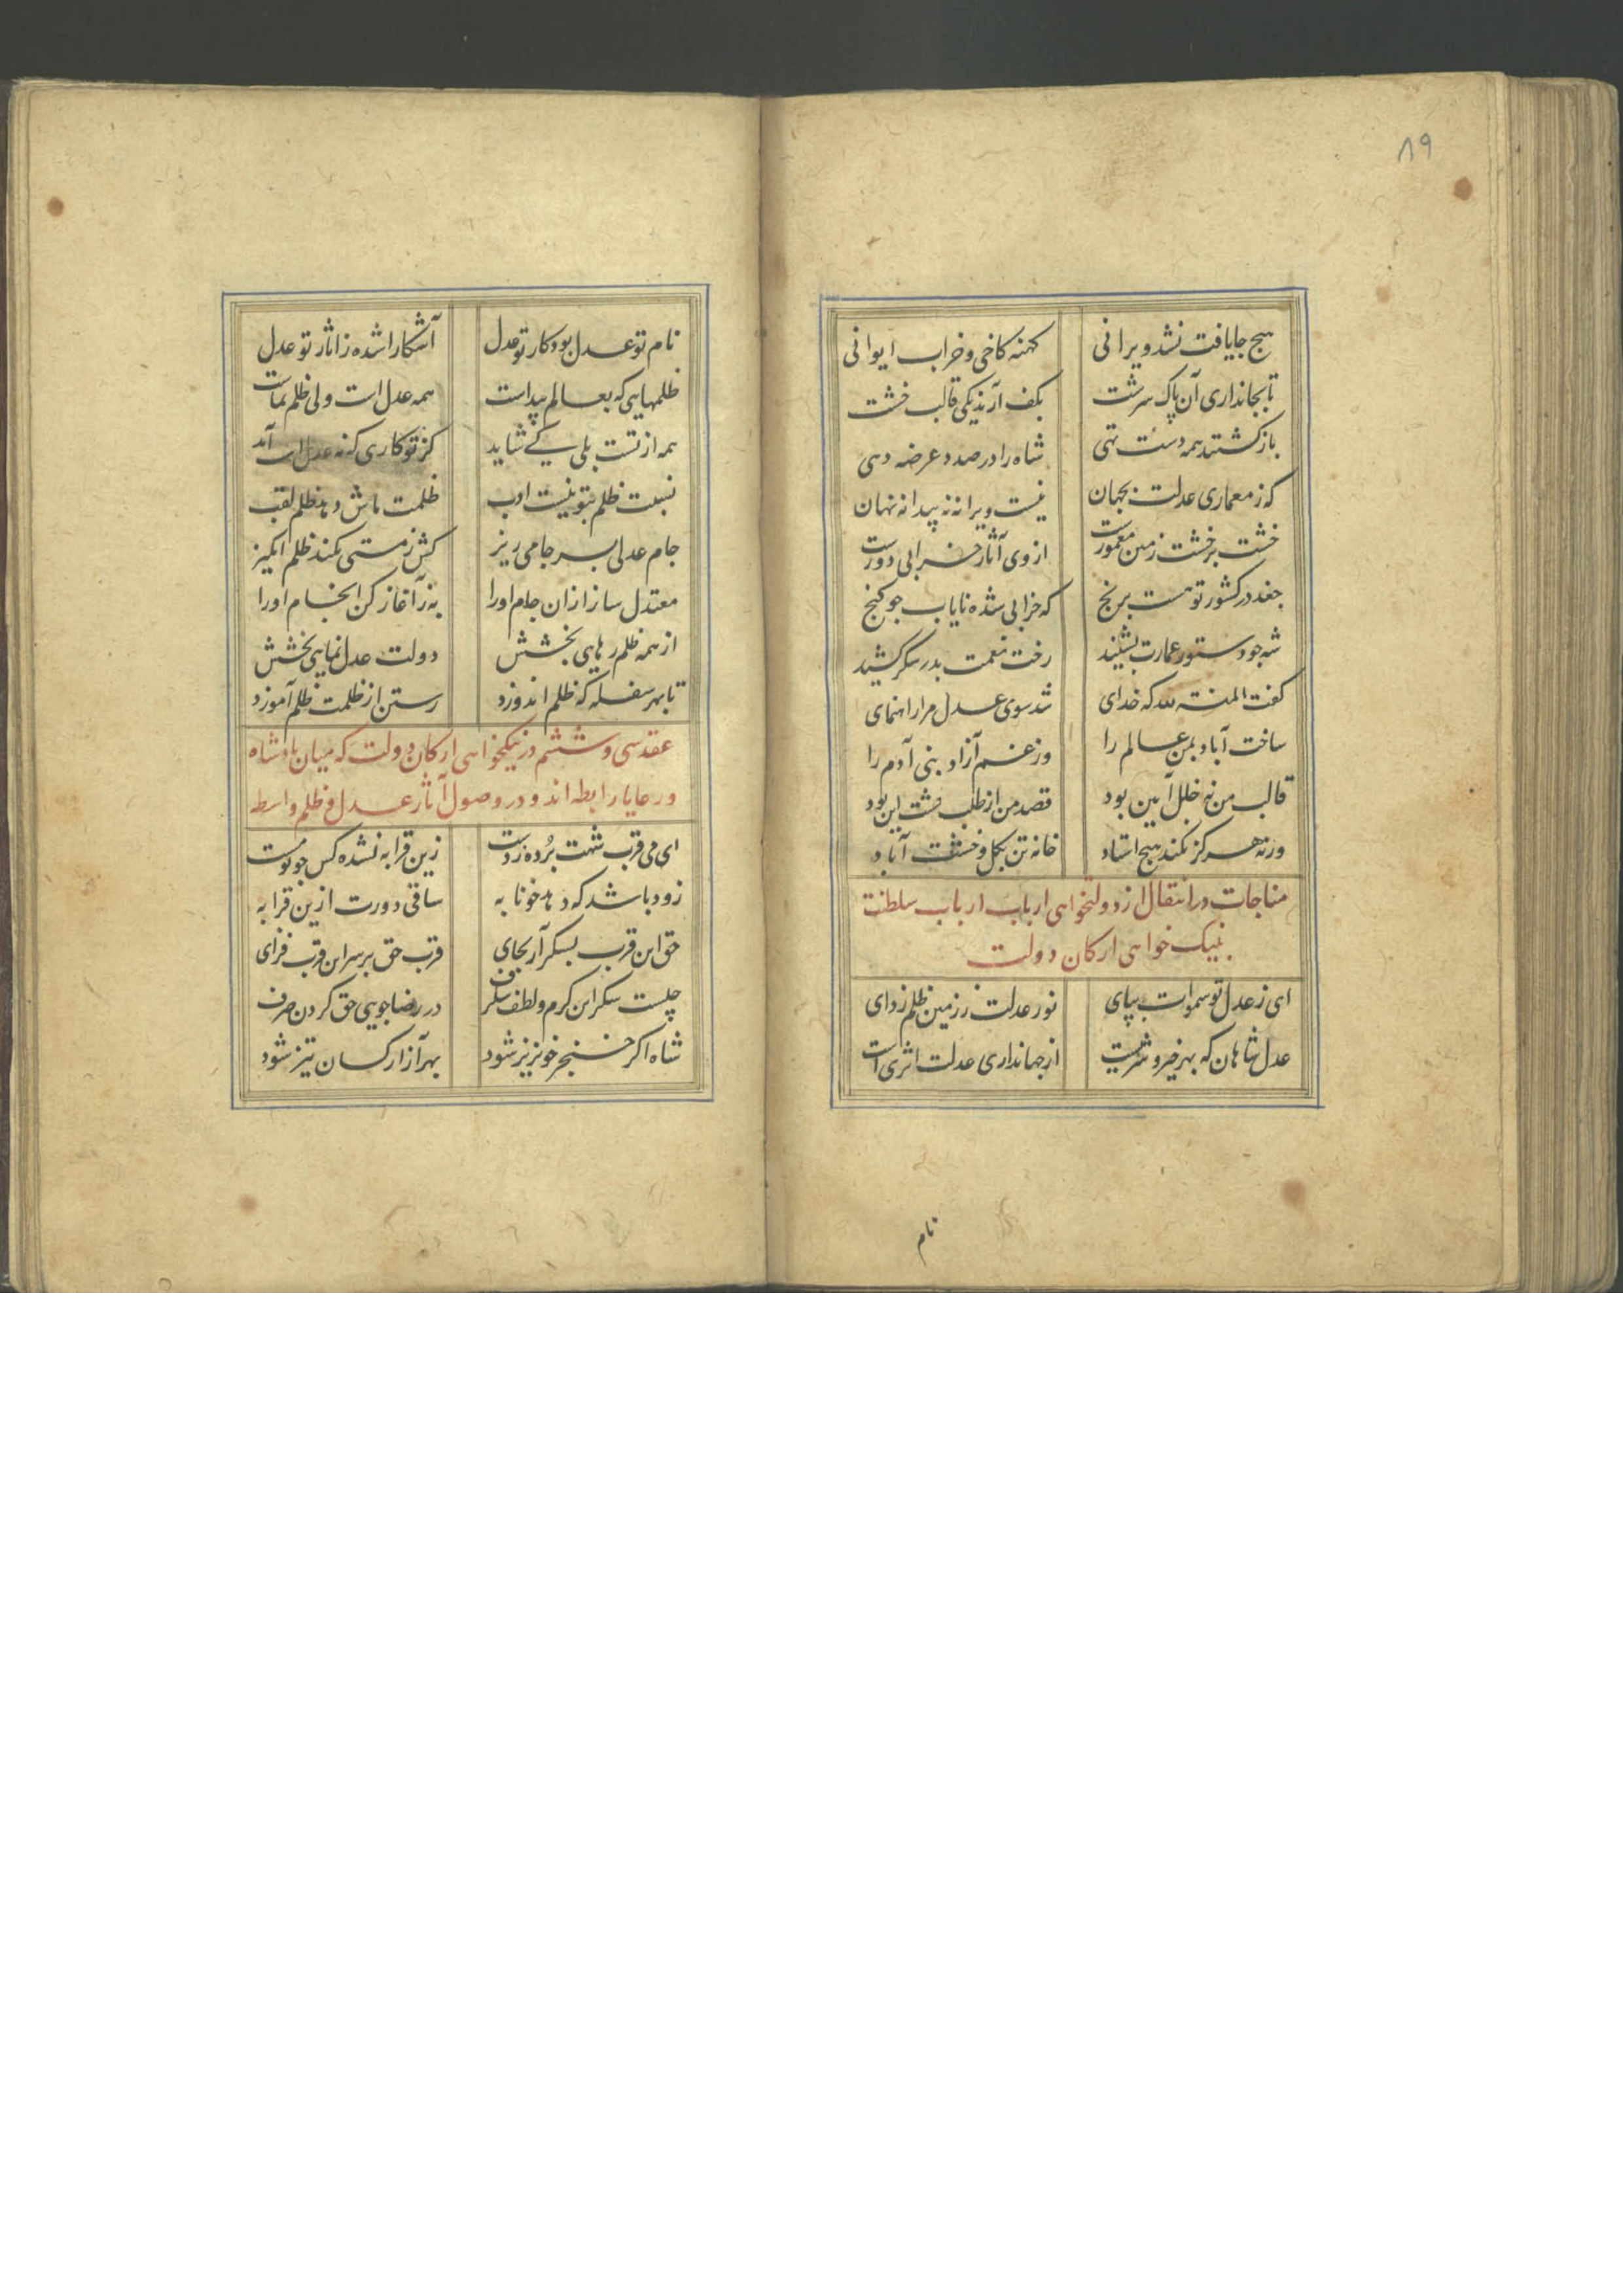 ۸۹
هیچ جا یافت نشد ویرانی کهنه کاخی و خراب ایوانی
تا بجانداری آن پاک سرشت بکف آرند یکی قالب خشت
بازگشتند همه دست تهی شاه را در صدد عرضه دهی
که ز معماری عدلت بجهان نیست ویرانه نه پیدا نه نهان
خشت بر خشت زمین معمورست از وی آثار خرابی دورست
جغد در کشور تو هست برنج که خرابی شده نایاب جو گنج
شه جو دستور عمارت بشنید رخت نعمت بدر سکر کشید
کفت المنته لله که خدای شد سوی عدل مرا راهنمای
ساخت آباد بمن عالم را وز غم آزاد بنی آدم را
قالب من نه خلل آیین بود قصد من از طلب خشت این بود
ورنه هرکز نکند هیچ استاد خانه تن بکل و خشت آباد
مناجات در انتقال از دولتخواهی ارباب ارباب سلطنت
بنیک خواهی ارکان دولت
ای ز عدل تو سموات بپای نور عدلت ز زمین ظلم زدای
عدل شاهان که بهر خیر و شریست از جهانداری عدلت اثری است
نام
نام تو عدل بود کار تو عدل آشکارا شده ز اثار تو عدل
ظلمهایی که بعالم پیداست همه عدل است ولی ظلم نماست
همه از تست بلی کی شاید کز تو کاری که نه عدل است آید
نسبت ظلم بتو نیست ادب ظلمت ماش دهد ظلم لقب
جام عدلی بسر جامی ریز کش ز مستی نکند ظلم انکیز
معتدل ساز ازان جام اورا به ز آغاز کن انجام اورا
از همه ظلم رهایی بخشش دولت عدل نمایی بخشش
تا بهر سفله که ظلم اندوزد رستن از ظلمت ظلم آموزد
عقد سی و ششم در نیکخواهی ارکان دولت که میان پادشاه
و رعایا رابطه اند و در وصول آثار عدل و ظلم واسطه
ای می قرب شهت برده ز دست زین قرابه نشده کس جو تو مست
زود باشد که دهد خونابه ساقی دورت ازین قرابه
حق این قرب بسکر آر بجای قرب حق بر سر این قرب فزای
چیست سکر این کرم و لطف سکرف در رضاجویی حق کردن صرف
شاه اکر خنجر خونریز شود بهر آزار کسان تیز شود